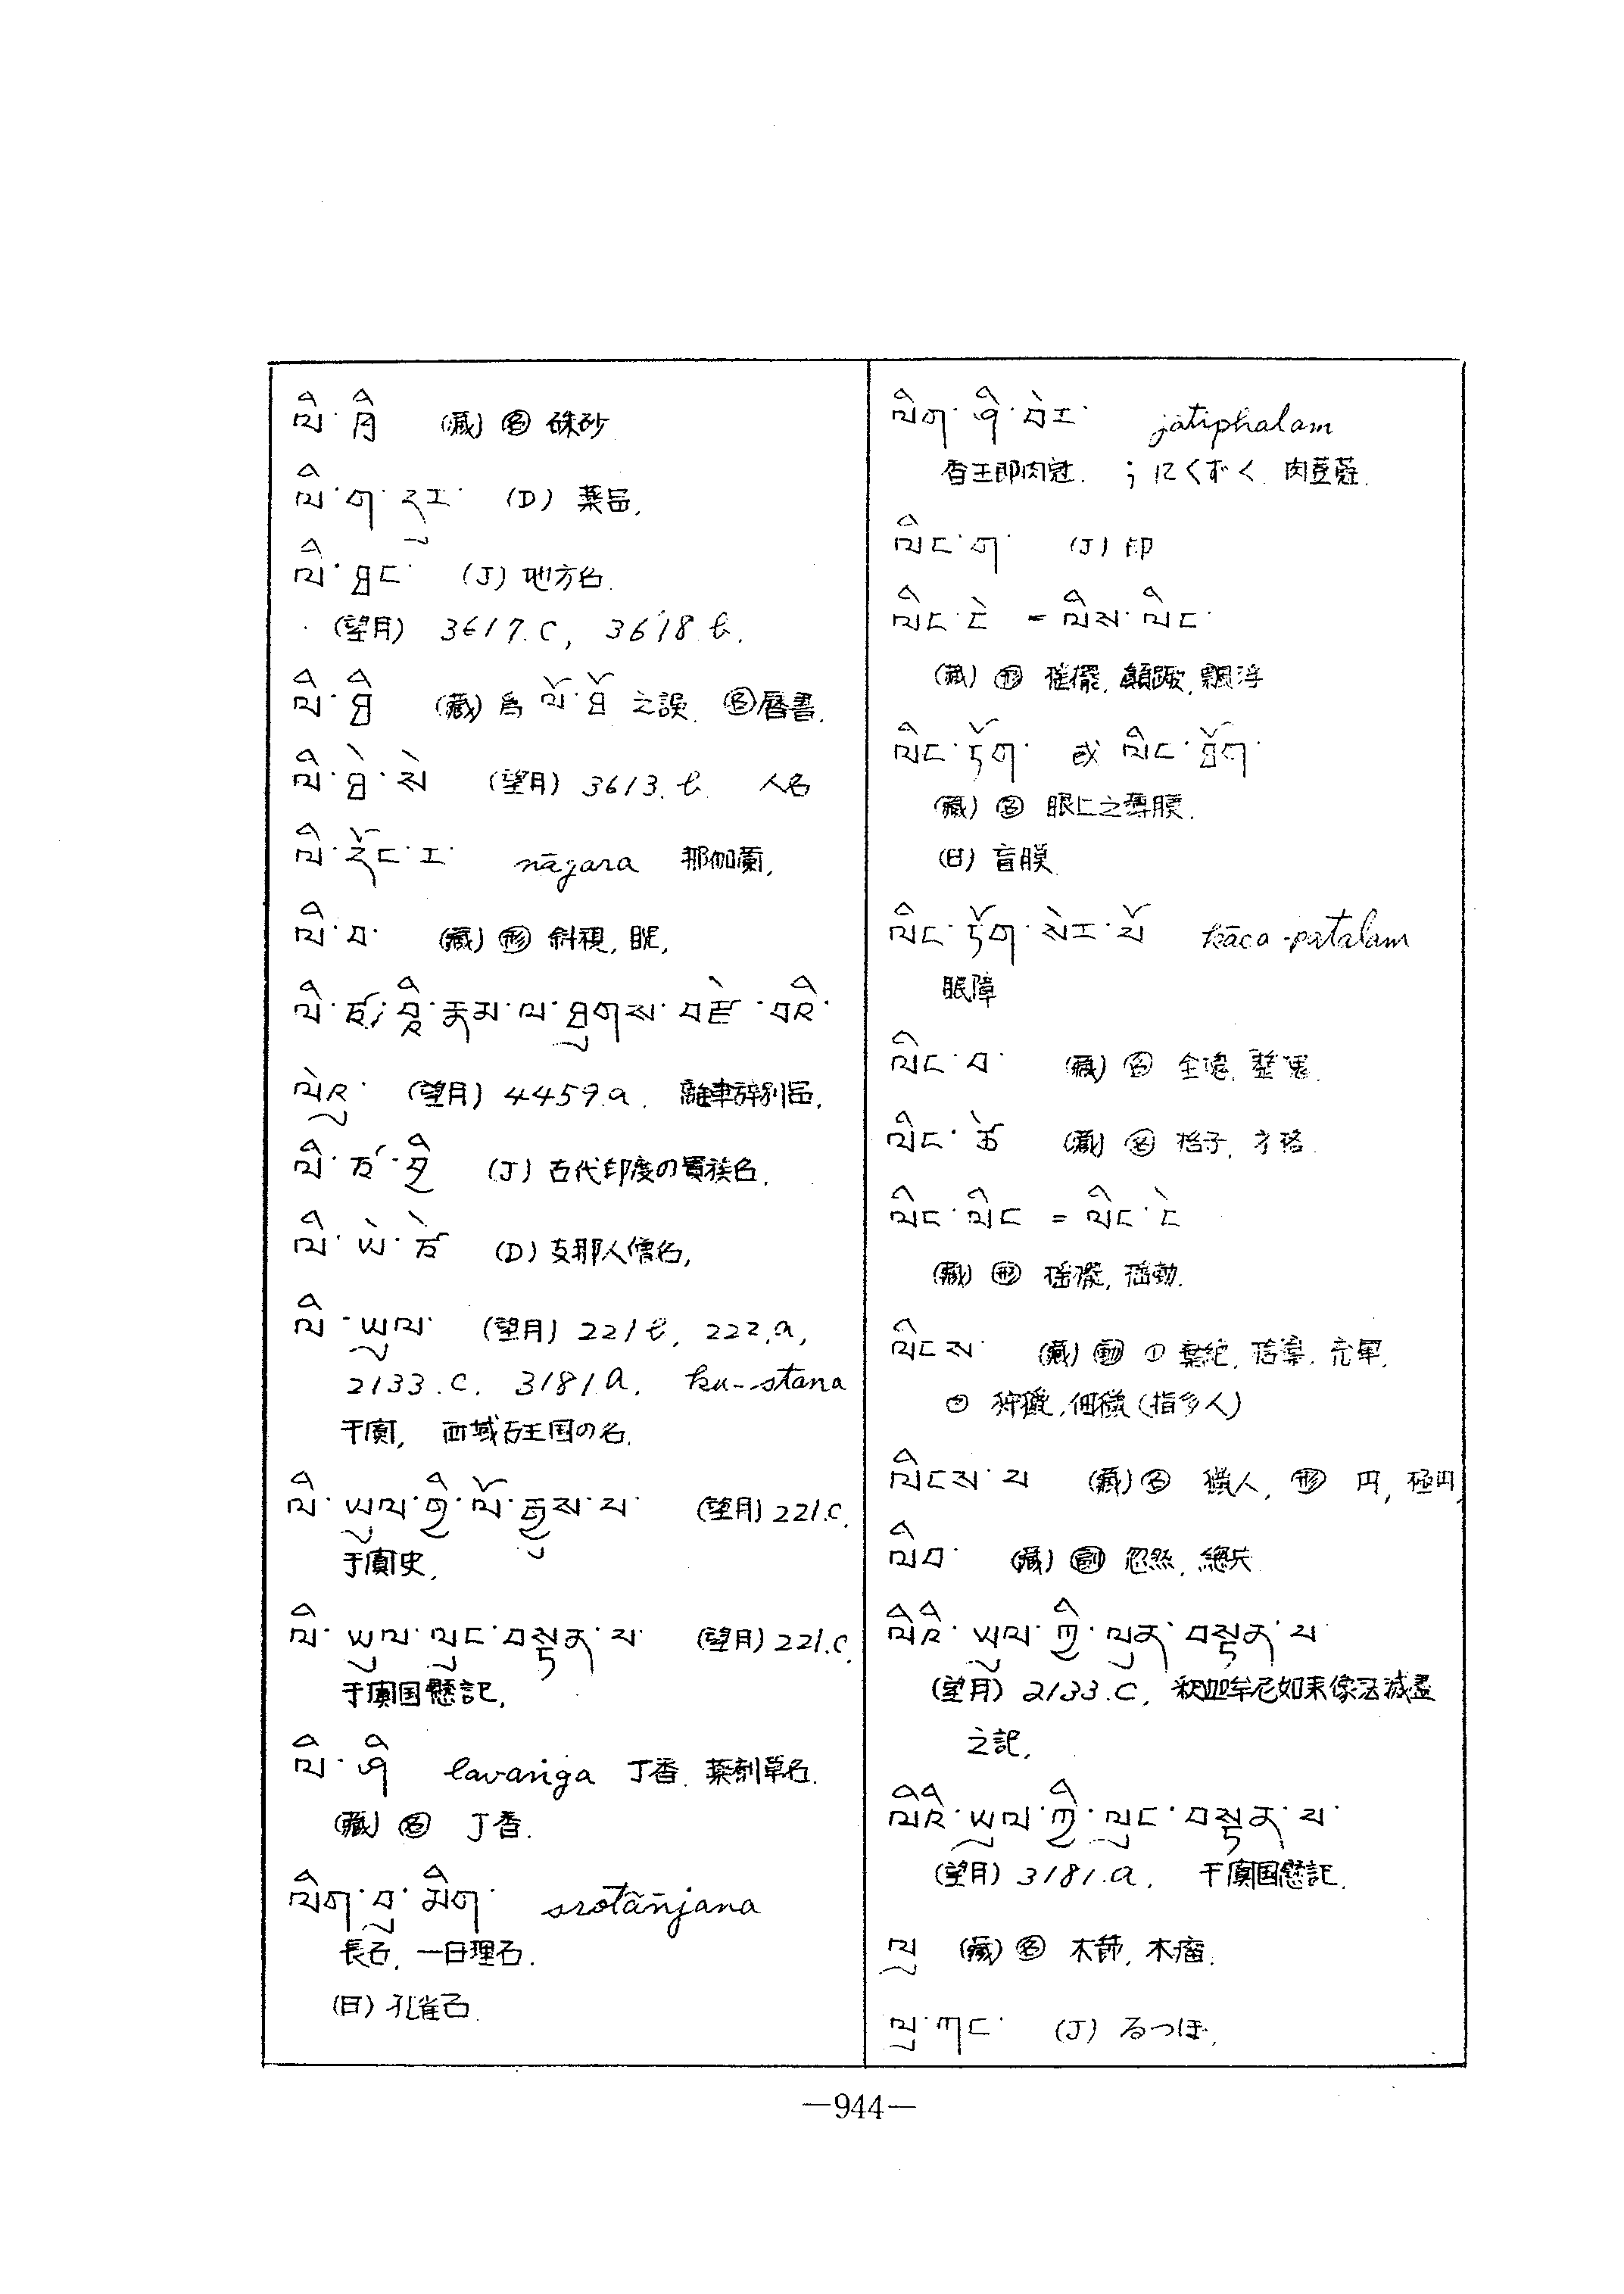 ལི་ཁྲི (藏) 名 硃砂
ལི་ག་དུར་ (D) 薬品,
ལི་ཐང་ (J) 地方名.
(望月) 3617.c, 3618.b.
(藏) 為 ལོ་ཐོ 之誤. 名暦書.
(望月) 3613.b. 人名
nāgara 那伽蘭,
ལི་བ་ (藏) 形 斜視, 眼,
ལི་ཙ་བྱི་རྣམ་ལ་ཐུགས་བརྩེ་བའི་
ལེའུ་ (望月) 4459.a. 離車辞別品,
(J) 古代印度の貴族名.
(D) 支那人僧名,
ལི་ཡུལ་ (望月) 221.b, 222.a,
2133.c, 3181.a, ku-stana
于闐, 西域古王国の名.
ལི་ཡུལ་གྱི་ལོ་རྒྱུས་པ་ (望月) 221.c.
于闐史.
ལི་ཡུལ་ལུང་བསྟན་པ་ (望月) 221.c.
于闐国懸記,
ལི་ཤི lavaṅga 丁香. 薬剤草名.
(藏) 名 丁香.
ལིག་བུ་མིག་ srotāñjana
長石, 一曰理石.
(日) 孔雀石.
jātiphalam
香玉即肉冦. ; にくずく. 肉荳蔲.
ལིང་ག་ (J) 印
ལིང་ངེ = ལིས་ལིང་
(藏) 形 顛蹶, 飄浮
ལིང་ཏོག་ 或 ལིང་ཐོག་
(藏) 名 眼上之薄膜.
(日) 盲膜.
ལིང་ཏོག་སེར་པོ kāca-patalam
眼障
ལིང་བ་ (藏) 名
ལིང་ཚེ (藏) 名 格子, 方格.
ལིང་ལིང = ལིང་ངེ
(藏) 形 揺擺, 揺動.
ལིངས་ (藏) 動 ①
② 狩獵, 佃獵 (指多人)
ལིངས་པ (藏) 名 獵人, 形 円, 極円.
ལིབ་ (藏) 副 忽然,
ལིའི་ཡུལ་གྱི་ལུན་བསྟན་པ
(望月) 2133.c, 釈迦牟尼如来像法滅盡
之記,
ལིའི་ཡུལ་གྱི་ལུང་བསྟན་པ་
(望月) 3181.a, 于闐国懸記.
ལུ (藏) 名 木節, 木瘤.
ལུ་ཀང་ (J) るつぼ,
—944—